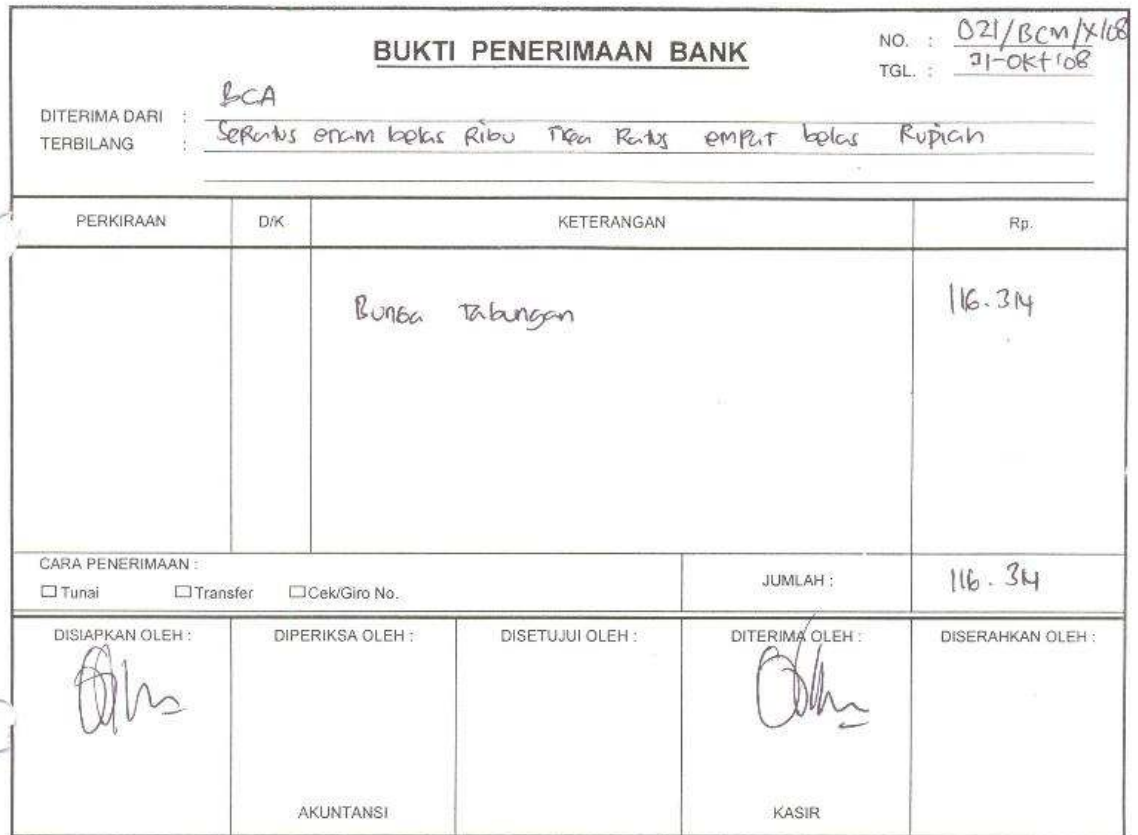 BUKTI PENERIMAAN BANK
NO. : 021/BCM/X/08
TGL. : 31-Okt'08
DITERIMA DARI : BCA
TERBILANG : Seratus enam belas Ribu Tiga Ratus empat belas Rupiah
PERKIRAAN D/K KETERANGAN Rp.
Bunga Tabungan 116.314
CARA PENERIMAAN :
Tunai Transfer Cek/Giro No. JUMLAH : 116.314
DISIAPKAN OLEH : DIPERIKSA OLEH : DISETUJUI OLEH : DITERIMA OLEH : DISERAHKAN OLEH :
AKUNTANSI KASIR